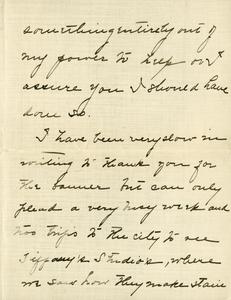 something entirely out of
my power to help or I
assure you I should have
done so.
I have been very slow in
writing to thank you for
the banner but can only
plead a very busy week and
two trips to the city to see
Tiffany's Studios, where
we saw how they make stain